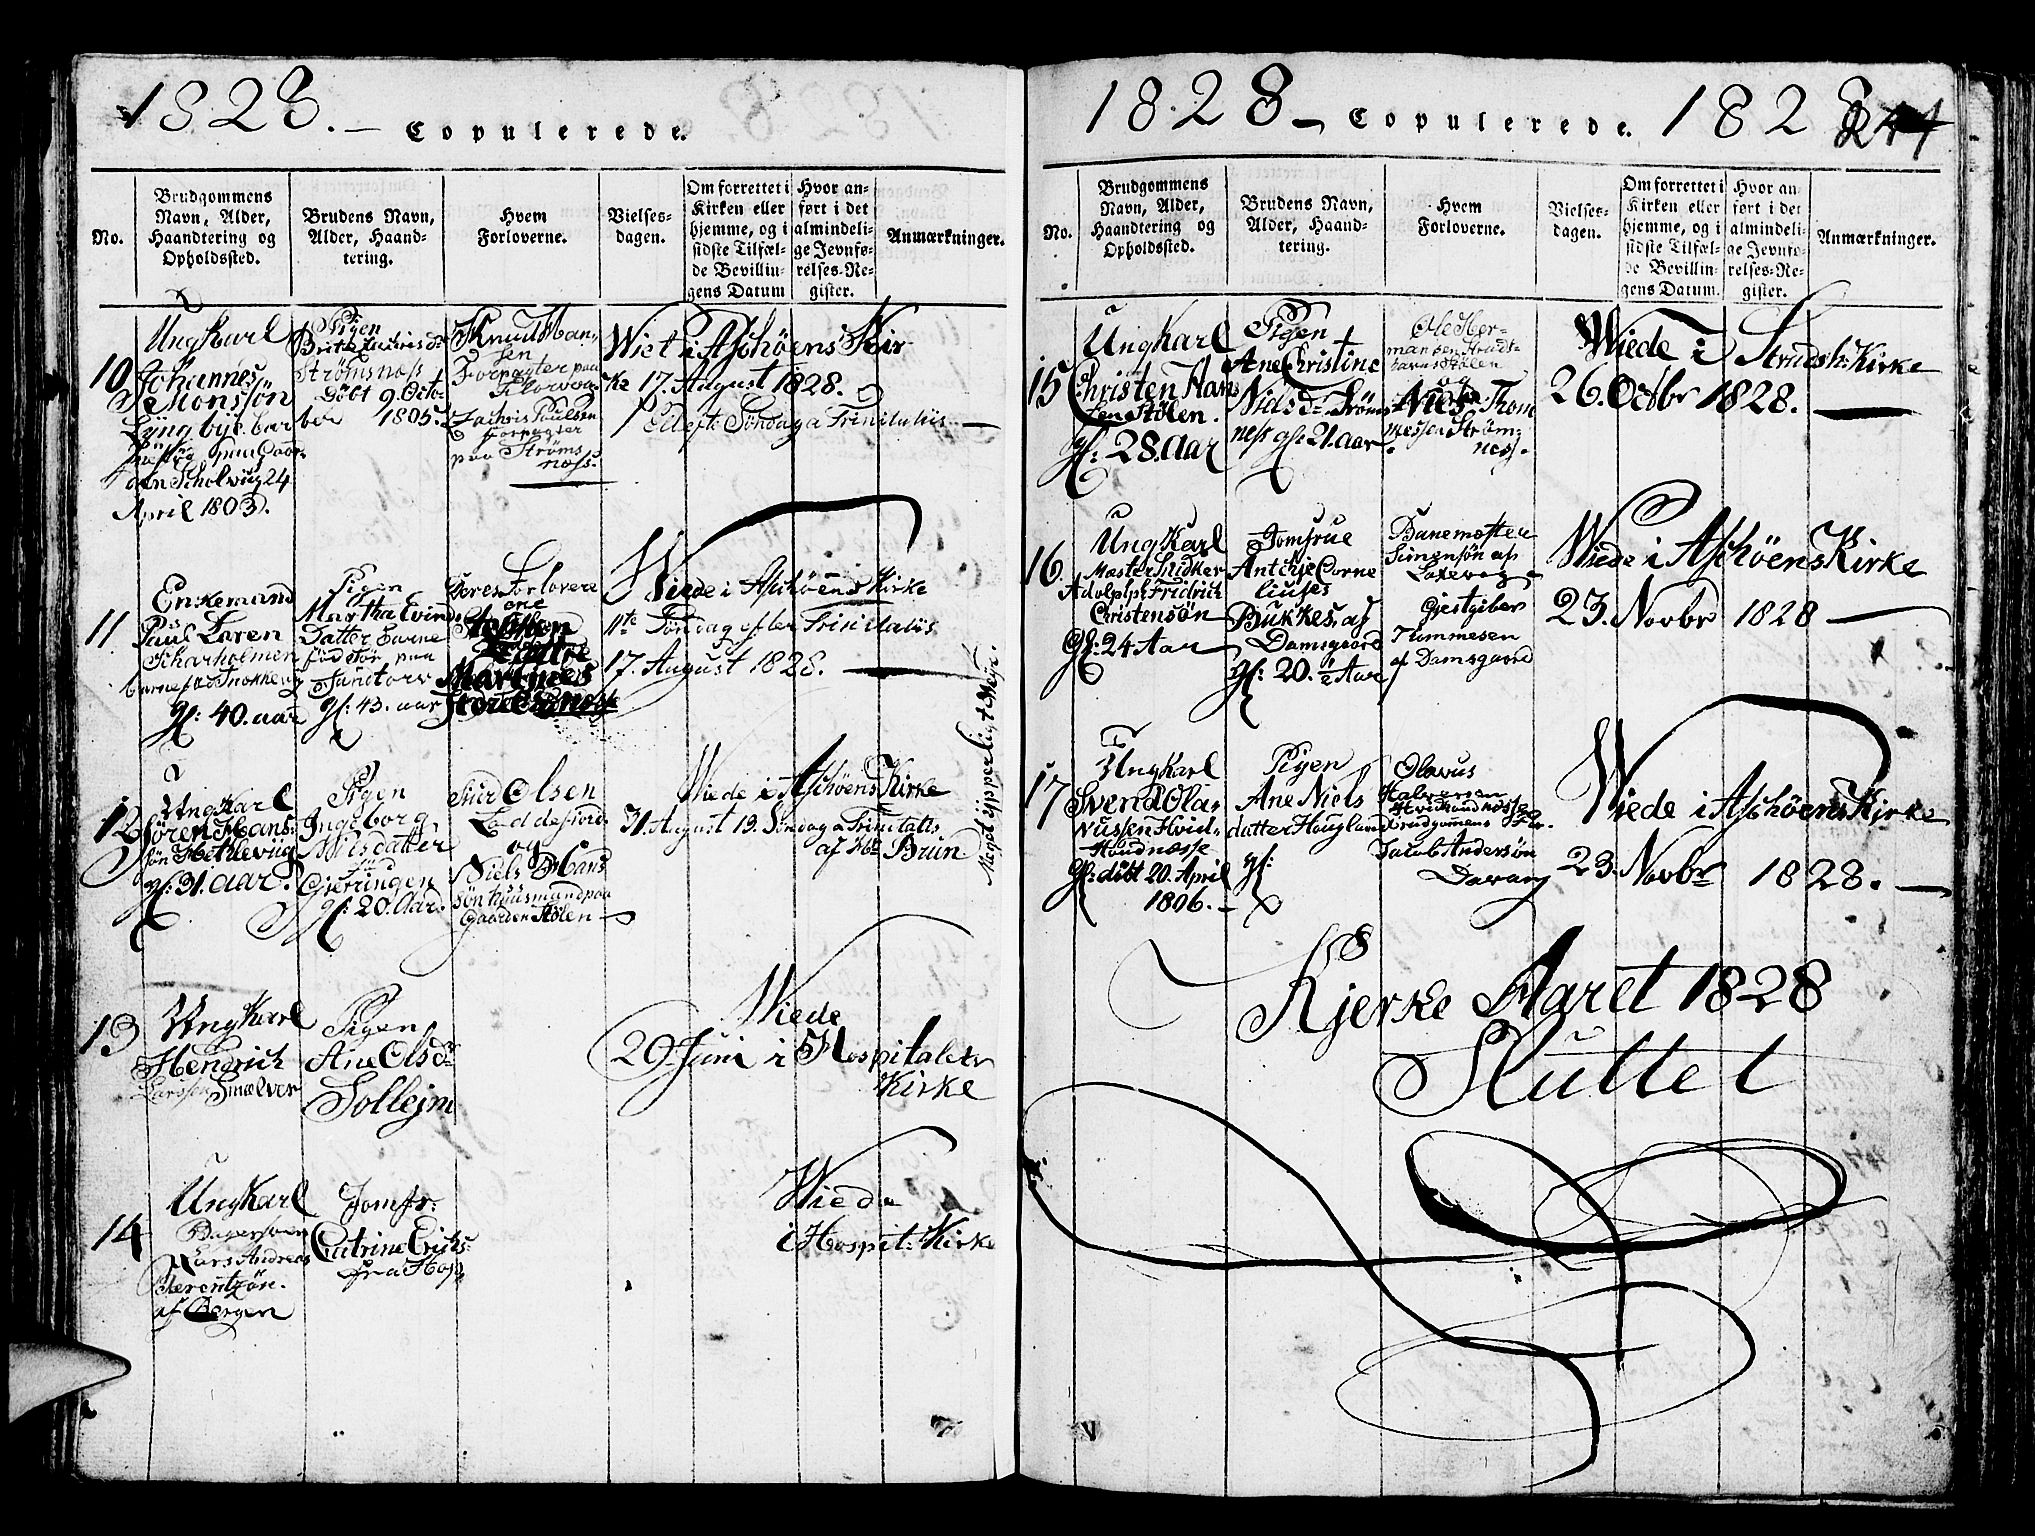 1828. –
Copulerede.
No.
Brudgommens
Navn, Alder,
Haandtering og
Opholdssted.
Brudens Navn,
Alder, Haand-
tering.
Hvem
Forloverne.
Vielses-
dagen.
Om forrettet i
Kirken eller
hjemme, og i
sidste Tilfæl-
de Bevillin-
gens Datum
Hvor an-
ført i det
almindeli-
ge Jevnfø-
relses-Re-
gister.
Anmærkninger.
10
Ungkarl
Johannes
Monssøn
Lyngbye
April 1803.
Pigen
Strømsnæss
født 9. Octo-
ber 1805.
Knud Han-
sen
Forpagter paa
Florvog
Zachris Paulsen
Forpagter
paa Strøms
næss.
Wiet i Aschøens Kir
ke 17. August 1828.
Ellefte Søndag a Trinitatis
11
Enkemand
Paul Laren
Scharholmen
gl: 40. aar
Pigen
Martha Evinds
Datter
gl: 43. aar
Forlovere
Wiede i Aschøens Kirke
11te Søndag efter Trinitatis
17. August 1828.
12
Ungkarl
Søren Hans-
søn Hetlevüg
gl: 31. aar.
Pigen
Ingeborg
Nilsdatter
Gjerringen
gl: 20. Aar.
Siur Olsen
Eddesford
og
Niels Hans
søn huusmand paa
Gaarden Stølen
Wiede i Aschøens Kirke
31. August 13. Søndag a Trinitatis
af Hr Brun
Meget ypperligt Veir.
13
Ungkarl
Hendrich
Larssen Smælver
Pigen
Ane Olsdr
Solhejm
Wiede
29. Juni i Hospitalets
Kirke
14
Ungkarl
Lars Andreas
Berentzøn.
af Bergen
Jomfr:
Catrine Erichs
fra Hosp
Wiede
i Hospit: Kirke
1828 –
Copulerede.
1828
244
No.
Brudgommens
Navn, Alder,
Haandtering og
Opholdssted.
Brudens Navn,
Alder, Haand-
tering.
Hvem
Forloverne.
Vielses-
dagen.
Om forrettet i
Kirken eller
hjemme, og i
sidste Tilfæl-
de Bevillin-
gens Datum.
Hvor an-
ført i det
almindeli-
ge Jevnfø-
relses-Re-
gister.
Anmærkninger.
15
Ungkarl
Christen Han
sen Stølen.
gl: 28. Aar
Pigen
Ane Christine
Nielsdr Strøm
ness gl: 21. aar
Ole Her-
mansen
Stølen
og
Niels Thom
messen Strøm-
ness.
Wiede i Strudsh: Kirke
26. Octbr 1828.
16
Ungkarl
Mæster Slidker
Adolph Fridrich
Christensøn
gl: 24 Aar
Jomfrue
Antchje Corne
liuses
Bukkes, af
Damsgaard
gl: 20. Aar
Banemæster
Simensøn af
Laxevog
Gjestgiber
Tummesen
af Damsgaard
Wiede i Aschøens Kirke
23. Novbr 1828
17
Ungkarl
Svend Ola-
nussen Hvid-
Houdnæsse
født 20. April
1806.
Pigen
Ane Niels
datter Hougland
gl:
Olavus
Halversen
Brudgomens Far.
Jacob Andersøn
Davang
Wiede i Aschøens Kirke
23. Novbr 1828.
Kjerke Aaret 1828
Sluttet